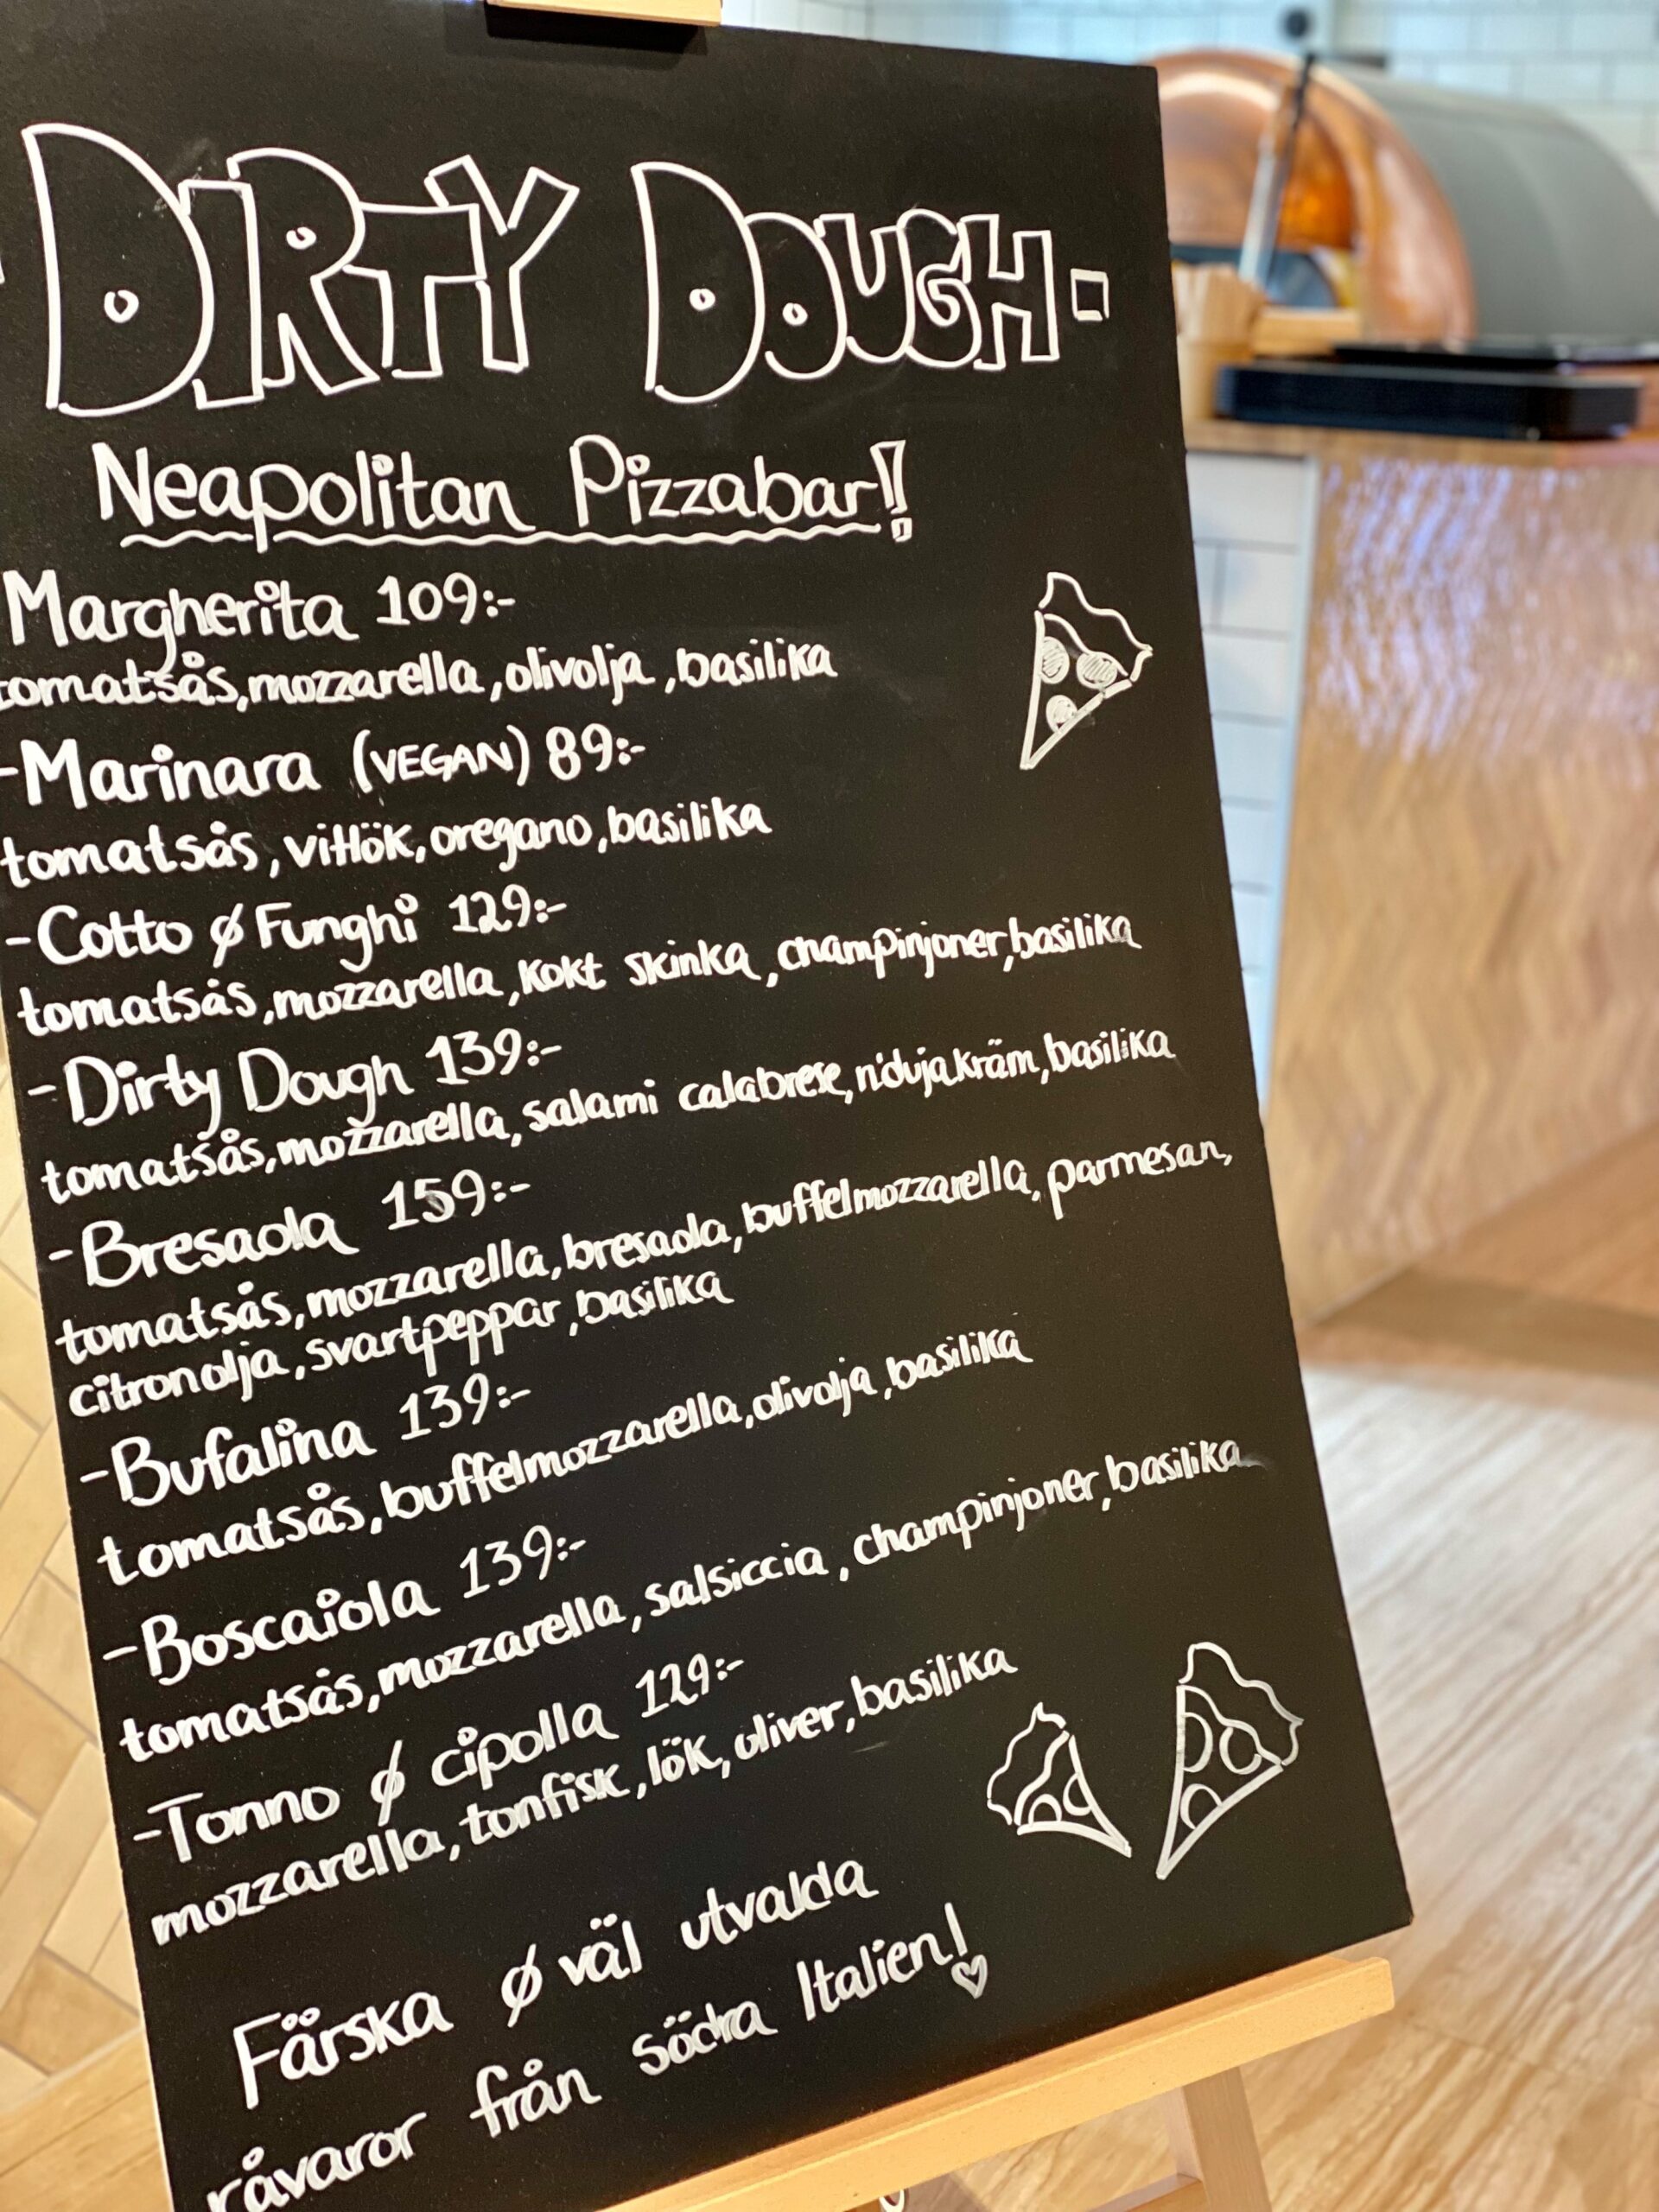 -DIRTY DOUGH-
Neapolitan Pizzabar!!
Margherita 109:-
tomatsås, mozzarella, olivolja, basilika
-Marinara (VEGAN) 89:-
tomatsås, vitlök, oregano, basilika
-Cotto & Funghi 129:-
tomatsås, mozzarella, kokt skinka, champinjoner, basilika
-Dirty Dough 139:-
tomatsås, mozzarella, salami calabrese, n'dujakräm, basilika
-Bresaola 159:-
tomatsås, mozzarella, bresaola, buffelmozzarella, parmesan,
citronolja, svartpeppar, basilika
-Bufalina 139:-
tomatsås, buffelmozzarella, olivolja, basilika
-Boscaiola 139:-
tomatsås, mozzarella, salsiccia, champinjoner, basilika
-Tonno & cipolla 129:-
mozzarella, tonfisk, lök, oliver, basilika
Färska & väl utvalda
råvaror från södra Italien!